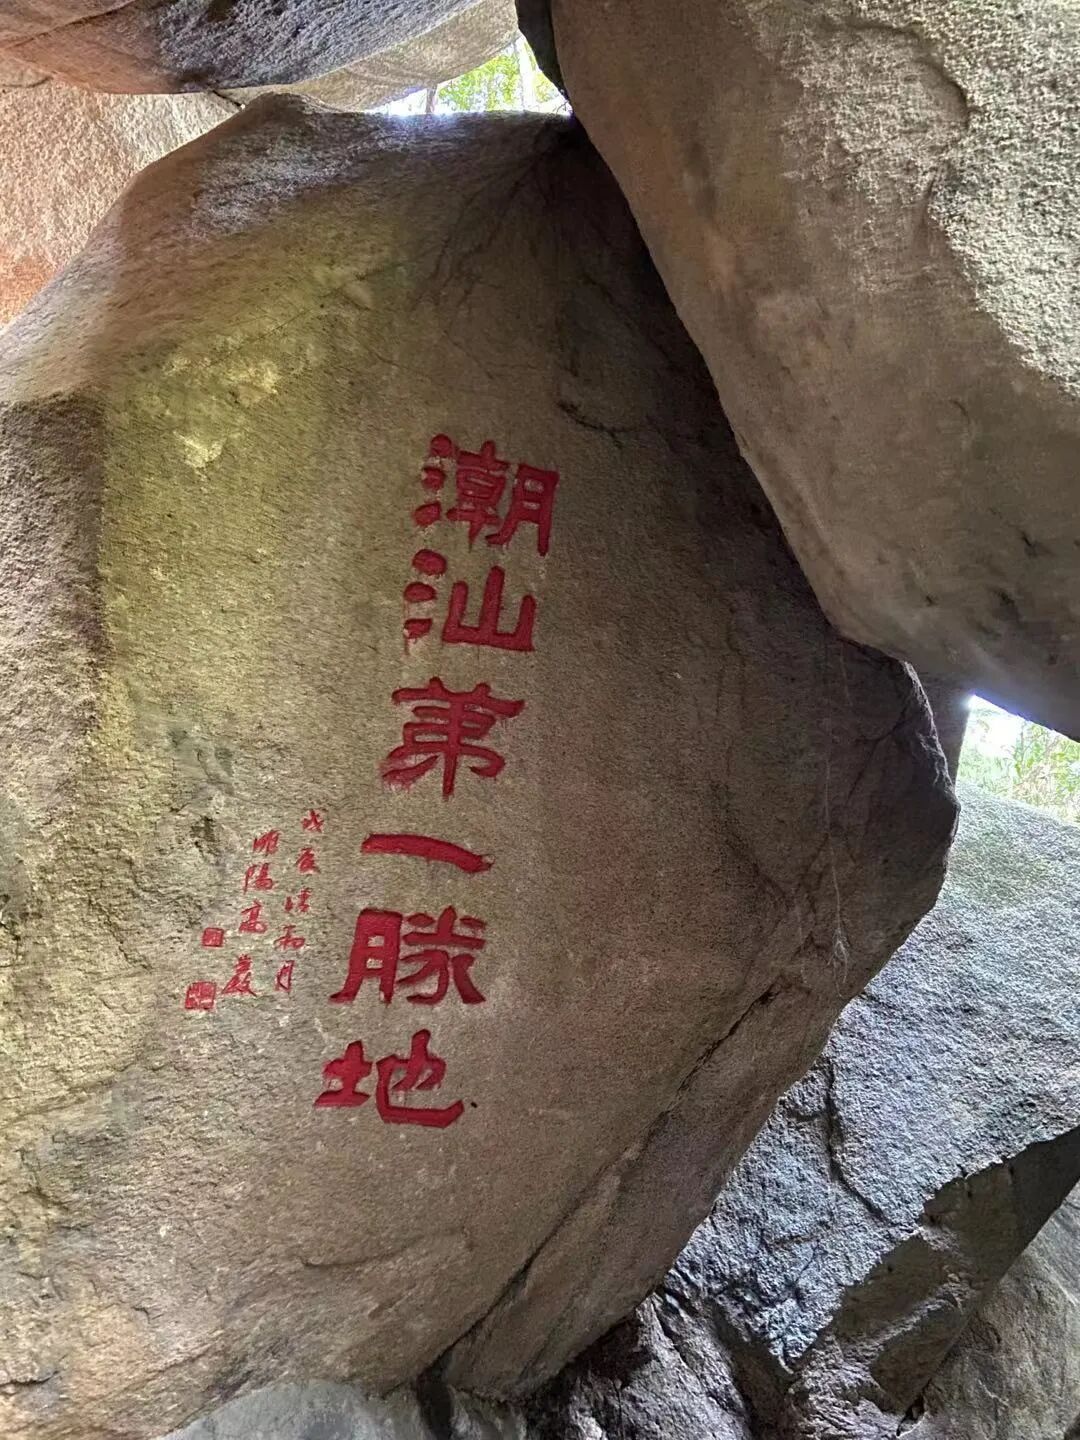 潮汕第一勝地
戊辰清和月
睢陽高巖